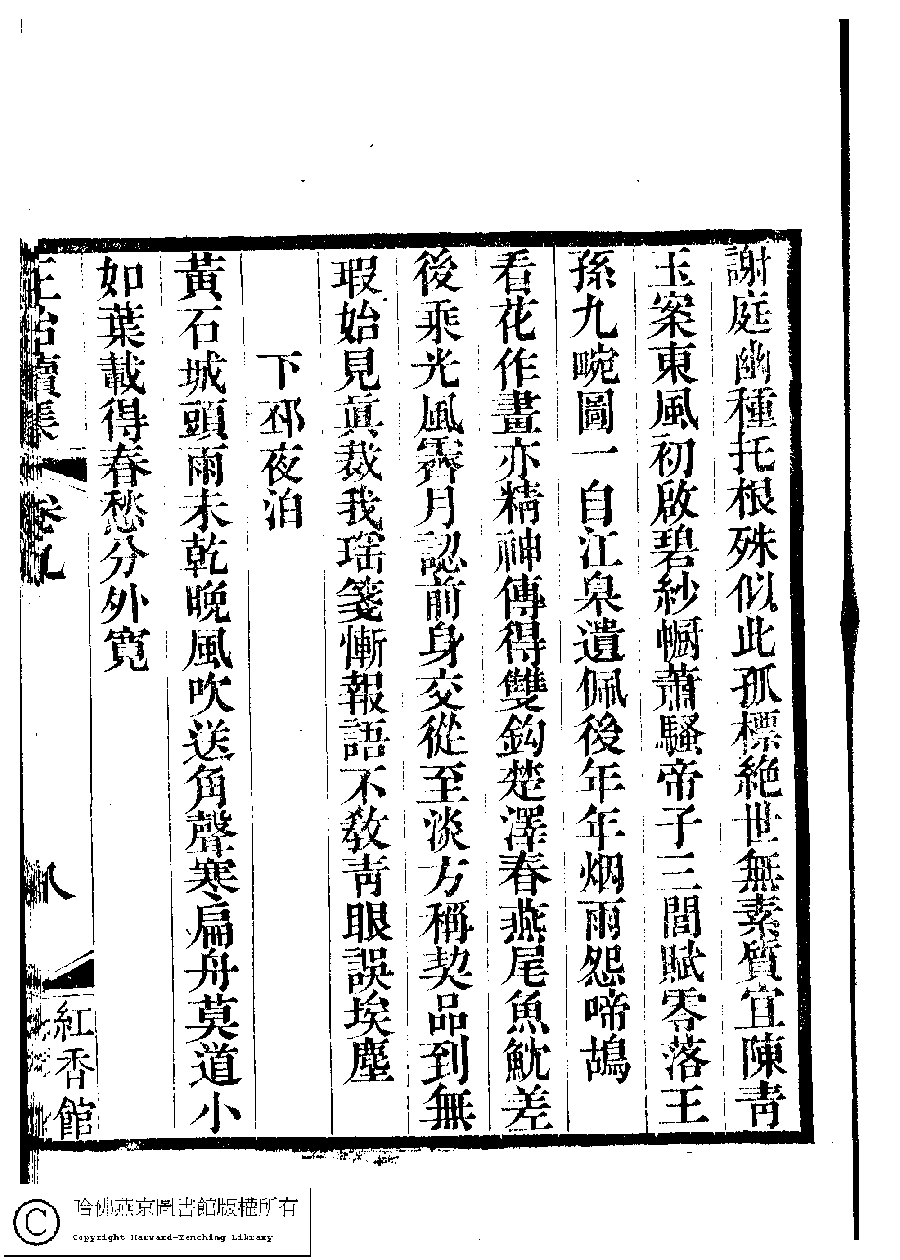 謝庭幽種托根殊似此孤標絕世無素質宜陳青
玉案東風初啟碧紗幮蕭騷帝子三閭賦零落王
孫九畹圖一自江臯遺佩後年年烟雨怨啼鴣
看花作畫亦精神傳得雙鈎楚澤春燕尾魚魫差
後乘光風霽月認前身交從至淡方稱契品到無
瑕始見眞裁我瑶箋慚報語不敎靑眼誤埃塵
下邳夜泊
黃石城頭雨未乾晚風吹送角聲寒扁舟莫道小
如葉載得春愁分外寬
卷九
八
紅香館
哈佛燕京圖書館版權所有
Copyright Harvard-Yenching Library